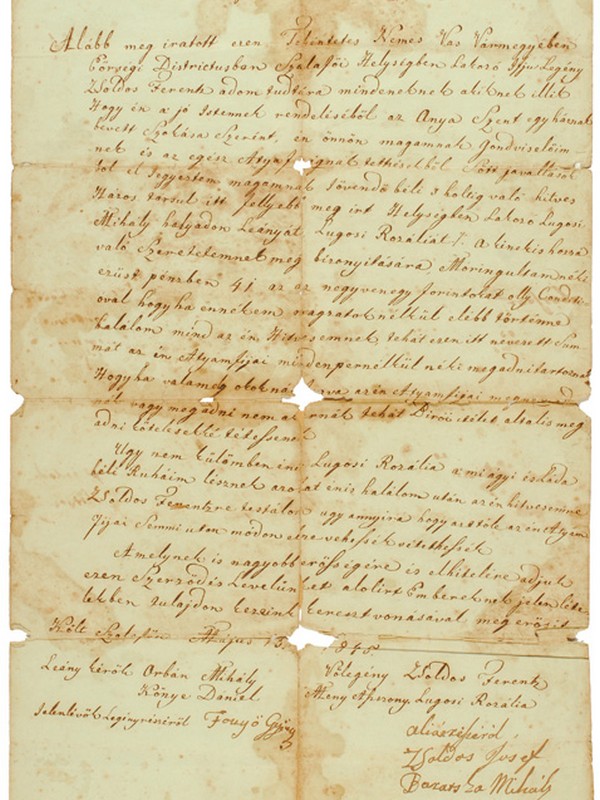 Alább meg iratott ezen Tekéntetes Nemes Vas Vármegyében
Eörségi Districtusban Szalafői Helységben Lakozó Ifjú Legény
Zsoldos Ferentz adom tudtára mindeneknek akiknek illik
Hogy én a jó Istennek rendeléséből az Anya Szent egy háznak
bevett Szokása Szerént, én önnön magamnak Gondviselőim
nek és az egész tettzéséből Sőtt javallások
tol el Jegyeztem magamnak Jövendőbéli s holtig való hitves
Házos társul itt fellyebb meg irt Helységben Lakozó Lugosi
Mihály hajadon Leányát Lugosi Rozáliát. a kinek is hozzá
való Szeretetemnek meg bizonyitására, Moringultam néki
ezüst pénzben 41 az az negyven egy forintokat olly Conditi
oval hogy ha énnékem magzatok nélkül elébb történne
halálom mind az én Hitvesemnek, tehát ezen itt nevezett Sum
mát az én Atyamfijai minden per nélkül néki megadni tartoznak
Hogy ha valamely okok az én Atyamfijai
vagy meg adni nem tehát Birói itélet által is meg
adni kötelesekké tétessenek
Ugy nem külömben én Lugosi Rozália a mi ágyi és Láda
béli Ruháim lésznek azokat én is halálom után az én hitvesemne
Zsoldos Ferentzre testálom ugy annyira hogy azt tőle az én Atyam
fijai Semmi uton modon el ne vehessék vétethessék
Amelynek is nagyobb erősségére is elhitelire adjuk
ezen Szerződés Levelünket alolirt Embereknek jelenléte
lekben tulajdon kezeink kereszt vonásával meg erősit
Költ Szalafőn Május 13 1845
Leány kérők Orbán Mihály
Könye Dániel
Jelenlévők Legény részéről Fonyó György
Vőlegény Zsoldos Ferentz
Meny Aszszony Lugosi Rozália
Zsoldos Josef
Mihály